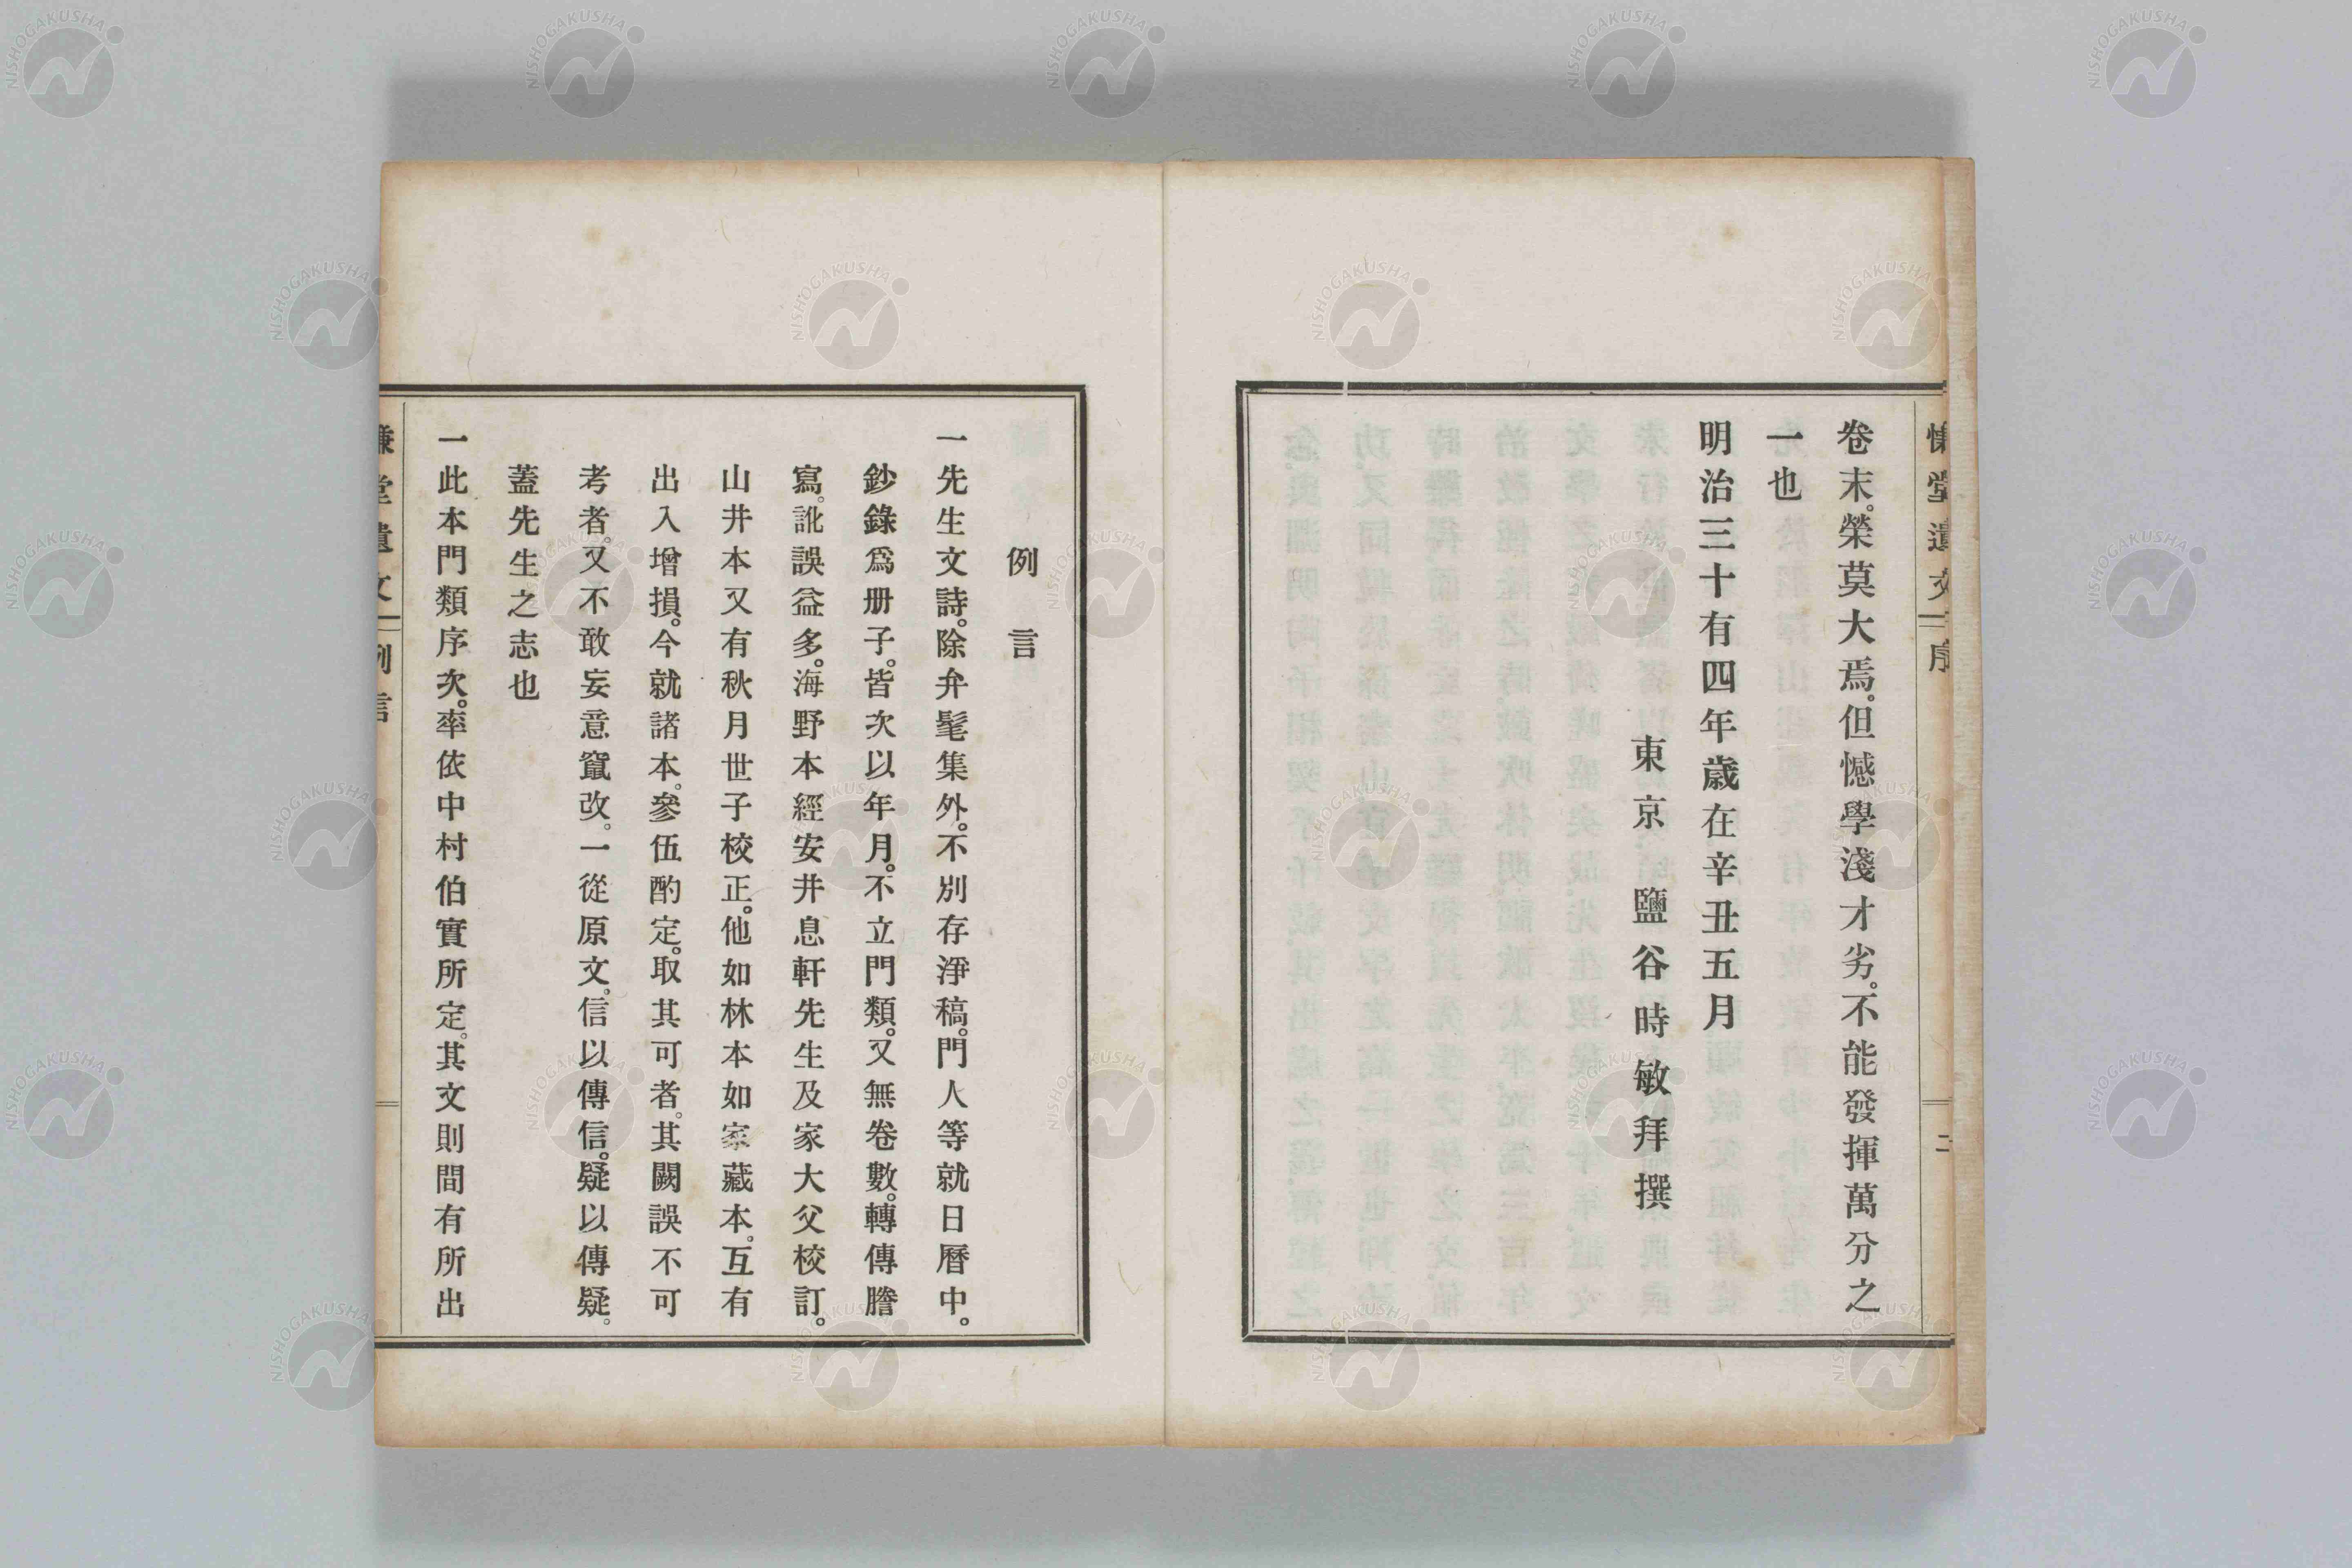 慊堂遺文
序
二
卷末。榮莫大焉。但憾學淺才劣。不能發揮萬分之
一也
明治三十有四年歲在辛丑五月
東京 鹽谷時敏拜撰
例言
一先生文詩。除弁髦集外。不別存淨稿。門人等就日曆中。
鈔錄爲册子。皆次以年月。不立門類。又無卷數。轉傳謄
寫。訛誤益多。海野本經安井息軒先生及家大父校訂。
山井本又有秋月世子校正。他如林本如家藏本。互有
出入增損。今就諸本。參伍酌定。取其可者。其闕誤不可
考者。又不敢妄意竄改。一從原文。信以傳信。疑以傳疑。
蓋先生之志也
一此本門類序次。率依中村伯實所定。其文則間有所出
慊堂遺文
例言
NISHOGAKUSHA